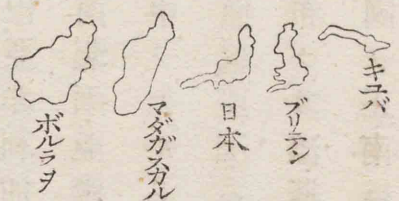 キユバ
ブリテン
日本
マダガスカル
ボルラヲ